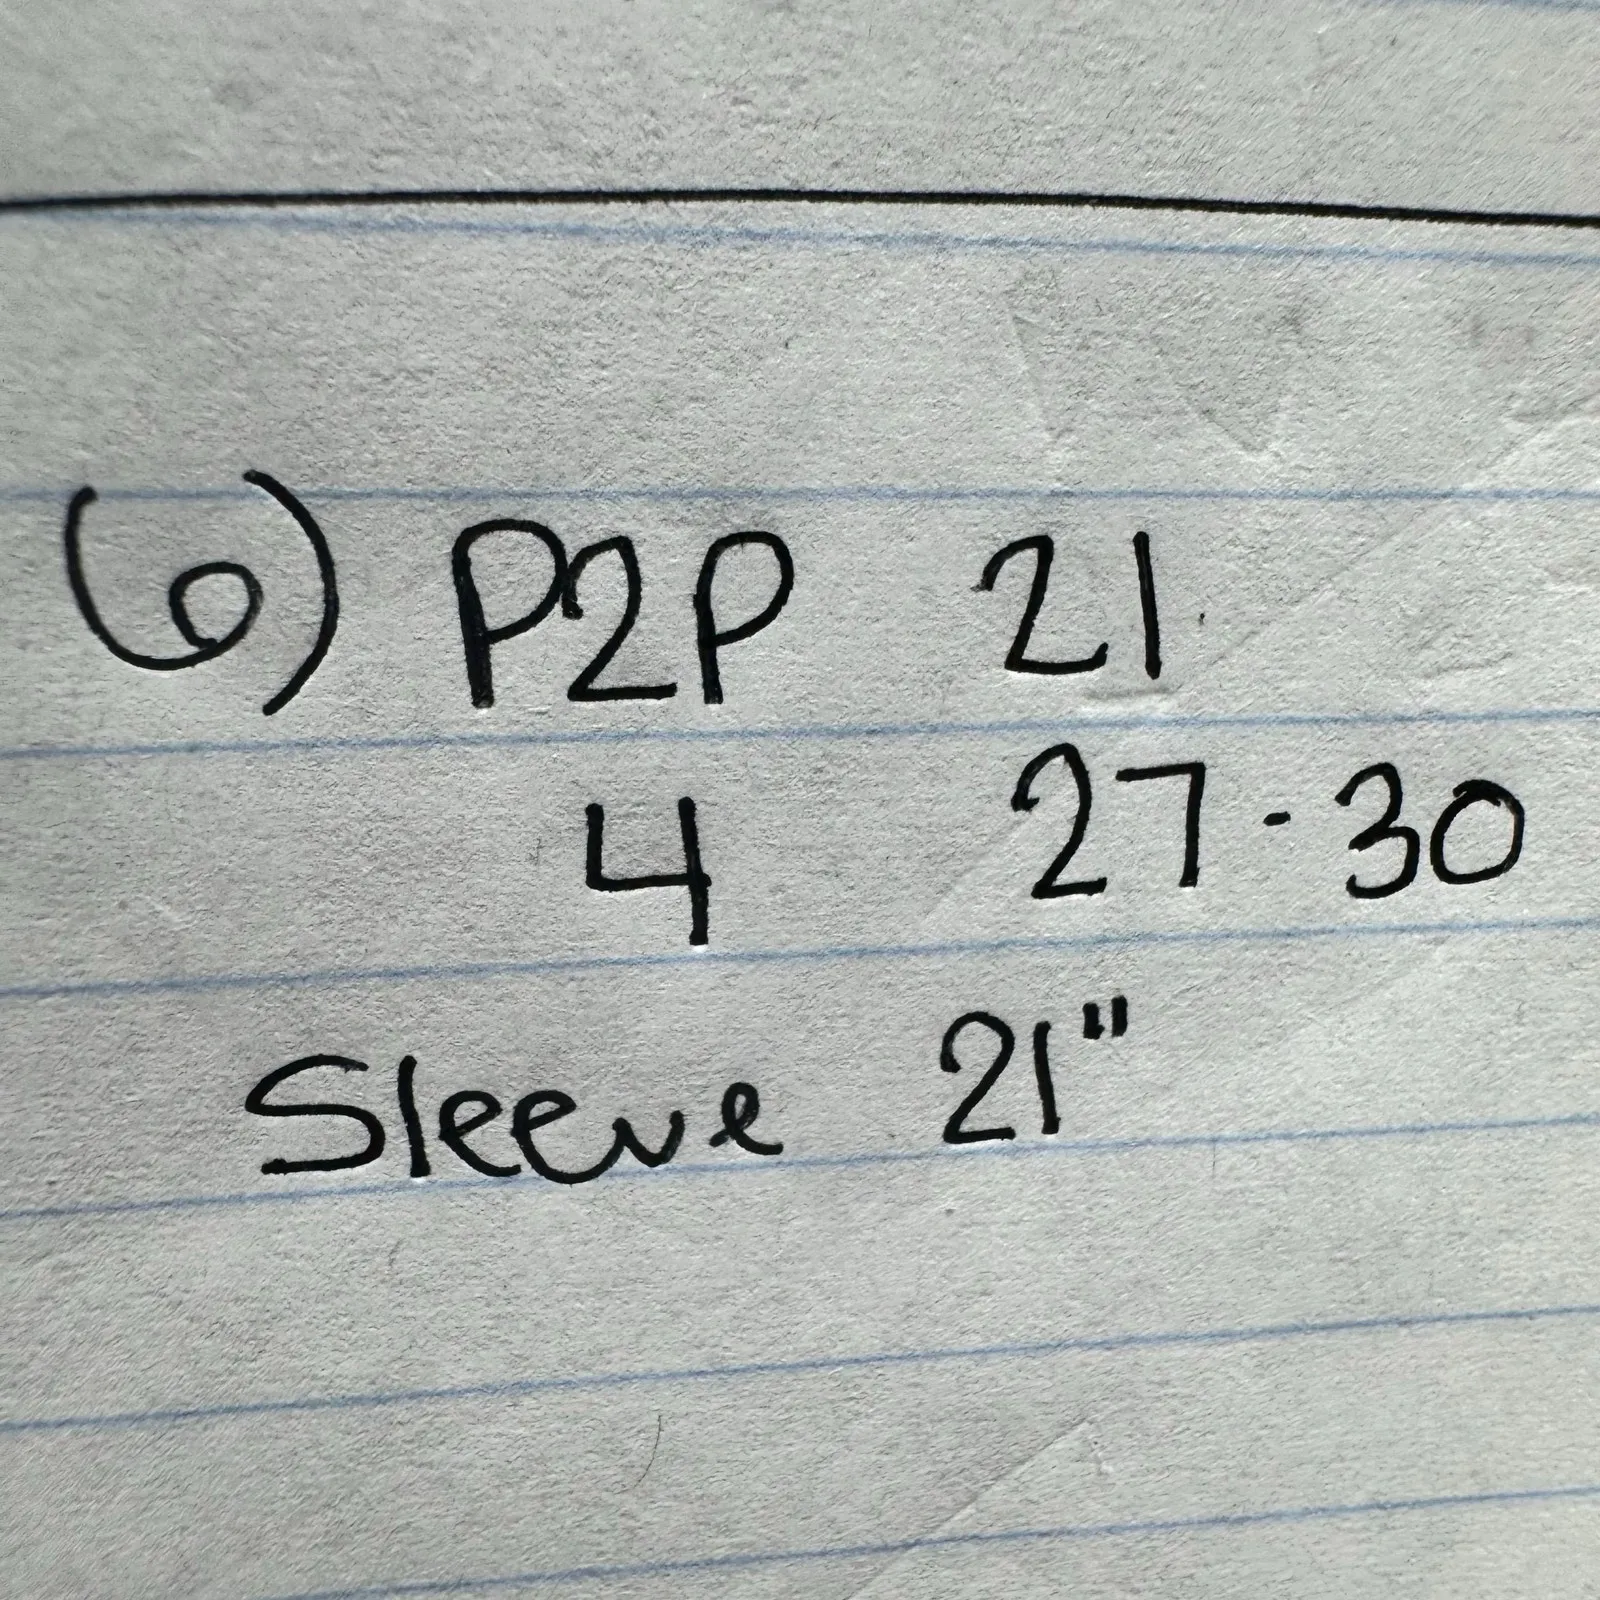 6) P2P 21
4 27-30
Sleeve 21"